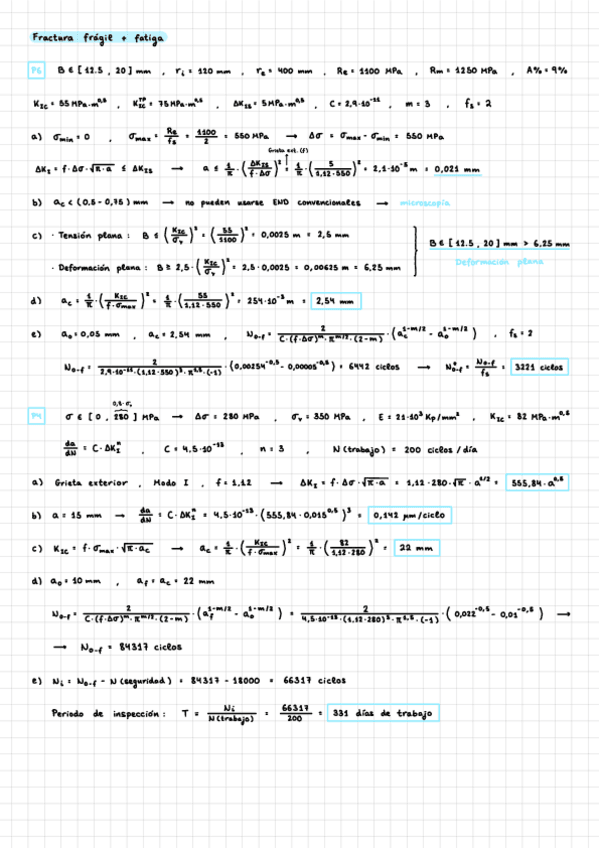 Fractura frágil + fatiga
P6 B ∈ [ 12.5 , 20 ] mm , rᵢ = 120 mm , rₑ = 400 mm , Re = 1100 MPa , Rm = 1250 MPa , A% = 9%
K_IC = 55 MPa·m^0,5 , K_IC^TP = 75 MPa·m^0,5 , ΔK_IS = 5 MPa·m^0,5 , C = 2,9·10^-11 , m = 3 , fₛ = 2
a) σmin = 0 , σmax = Re/fs = 1100/2 = 550 MPa → Δσ = σmax - σmin = 550 MPa
Grieta ext. (f)
ΔK_I = f·Δσ·√(π·a) ≤ ΔK_IS → a ≤ 1/π·(ΔK_IS/(f·Δσ))² = 1/π·(5/(1,12·550))² = 2,1·10^-5 m = 0,021 mm
b) a_c < (0,5 - 0,75) mm → no pueden usarse END convencionales → microscopía
c) · Tensión plana : B ≤ (K_IC/σ_Y)² = (55/1100)² = 0,0025 m = 2,5 mm
B ∈ [ 12.5 , 20 ] mm > 6,25 mm
Deformación plana
· Deformación plana : B ≥ 2,5·(K_IC/σ_Y)² = 2,5·0,0025 = 0,00625 m = 6,25 mm
d) a_c = 1/π·(K_IC/(f·σmax))² = 1/π·(55/(1,12·550))² = 254·10^-3 m = 2,54 mm
e) a₀ = 0,05 mm , a_c = 2,54 mm , N₀₋f = 2/(C·(f·Δσ)^m·π^(m/2)·(2-m))·(a_c^(1-m/2) - a₀^(1-m/2)) , fₛ = 2
N₀₋f = 2/(2,9·10^-11·(1,12·550)³·π^1,5·(-1))·(0,00254^-0,5 - 0,00005^-0,5) = 6442 ciclos → N₀₋f* = N₀₋f/fs = 3221 ciclos
0,8·σ_Y
P4 σ ∈ [ 0 , 280 ] MPa → Δσ = 280 MPa , σ_Y = 350 MPa , E = 21·10³ Kp/mm² , K_IC = 82 MPa·m^0,5
da/dN = C·ΔK_I^n , C = 4,5·10^-13 , n = 3 , N(trabajo) = 200 ciclos/día
a) Grieta exterior , Modo I , f = 1,12 → ΔK_I = f·Δσ·√(π·a) = 1,12·280·√π·a^1/2 = 555,84·a^0,5
b) a = 15 mm → da/dN = C·ΔK_I^n = 4,5·10^-13·(555,84·0,015^0,5)³ = 0,142 μm/ciclo
c) K_IC = f·σmax·√(π·a_c) → a_c = 1/π·(K_IC/(f·σmax))² = 1/π·(82/(1,12·280))² = 22 mm
d) a₀ = 10 mm , a_f = a_c = 22 mm
N₀₋f = 2/(C·(f·Δσ)^m·π^(m/2)·(2-m))·(a_f^(1-m/2) - a₀^(1-m/2)) = 2/(4,5·10^-13·(1,12·280)³·π^1,5·(-1))·(0,022^-0,5 - 0,01^-0,5) →
→ N₀₋f = 84317 ciclos
e) Nᵢ = N₀₋f - N(seguridad) = 84317 - 18000 = 66317 ciclos
Periodo de inspección : T = Nᵢ/N(trabajo) = 66317/200 = 331 días de trabajo